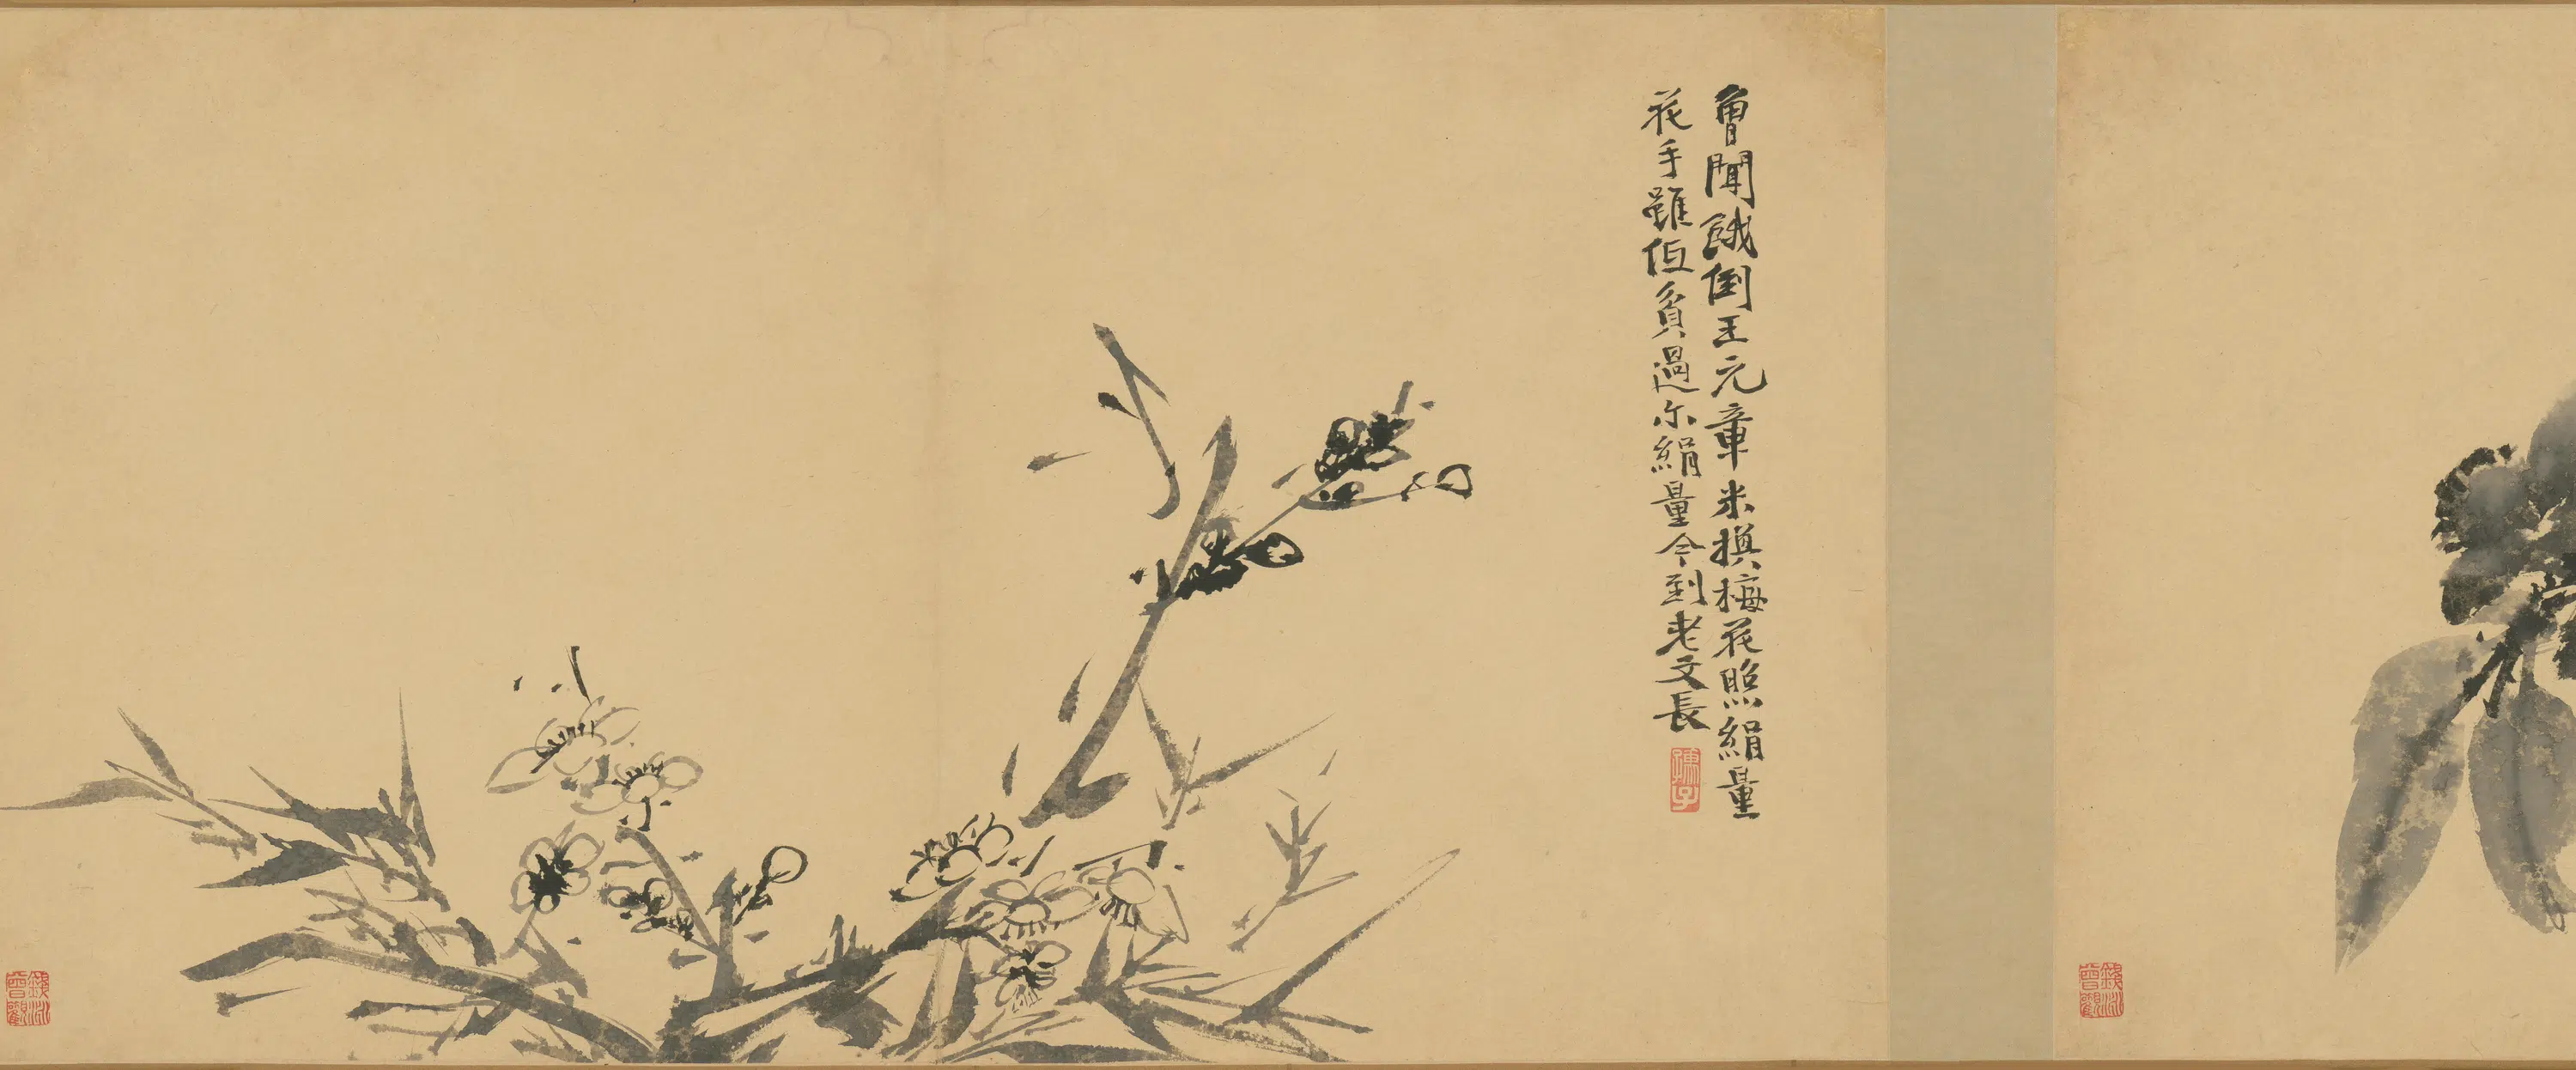 曾聞餓倒王元章米換梅花照絹量
花手雖低貧過尓絹量今到老文長